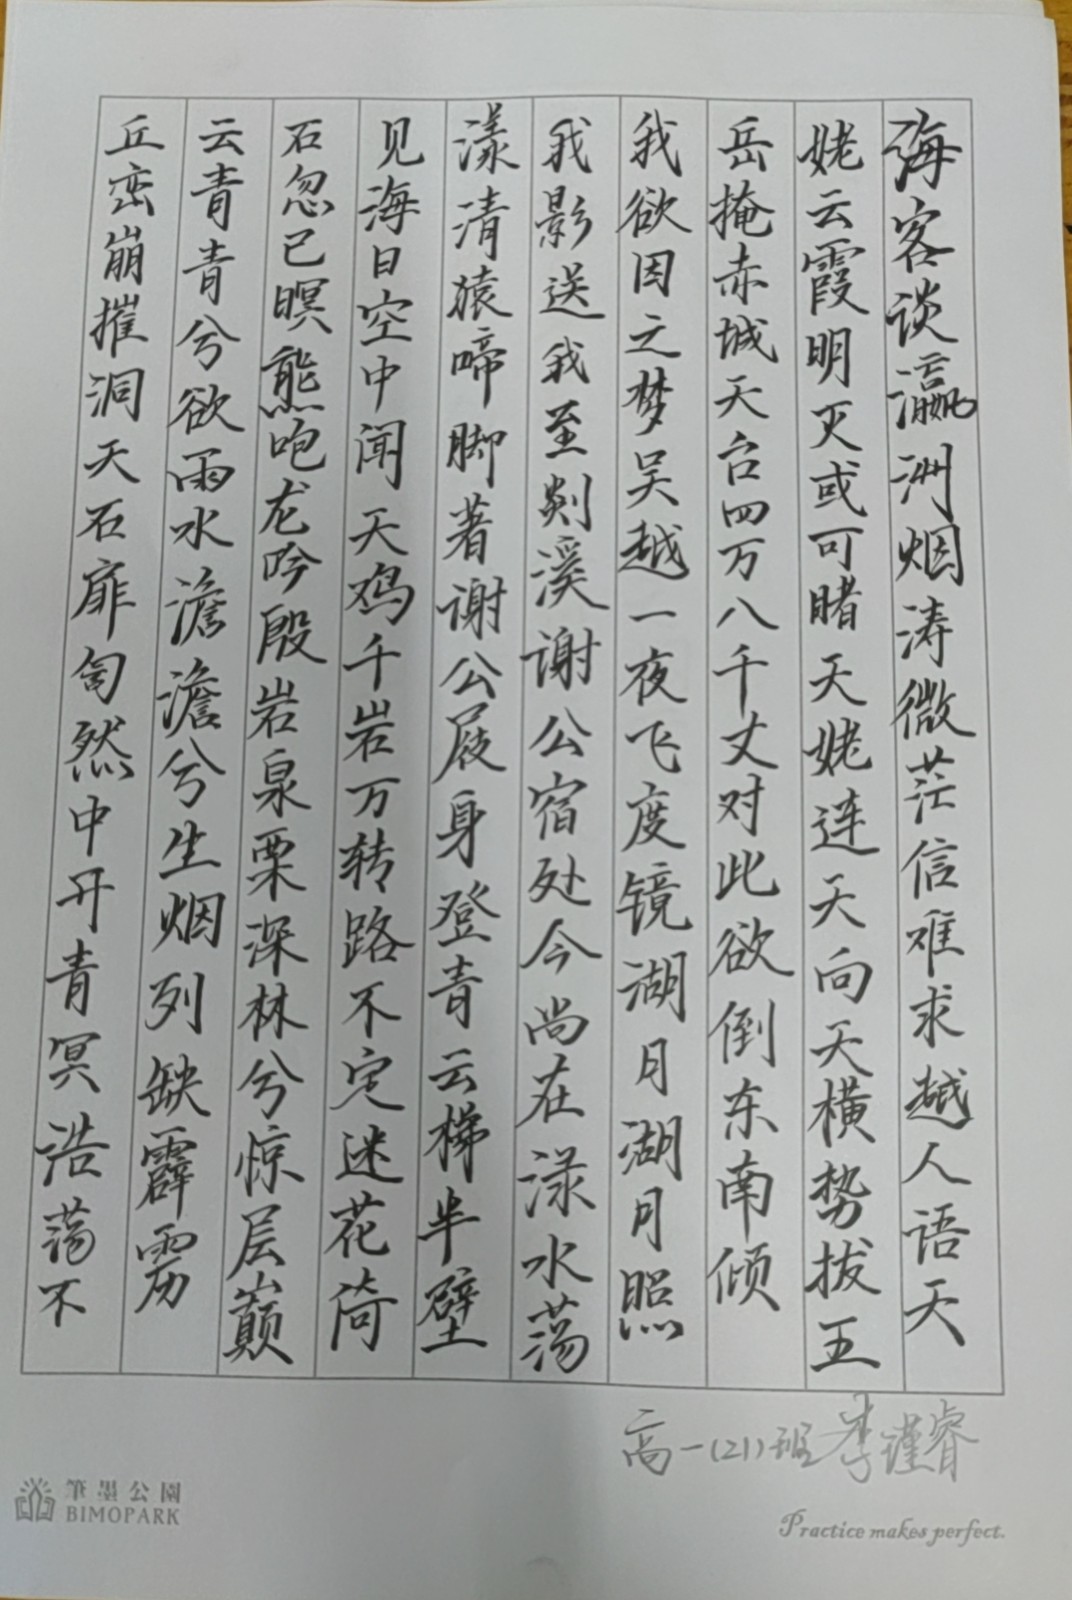 海客谈瀛洲烟涛微茫信难求越人语天
姥云霞明灭或可睹天姥连天向天横势拔五
岳掩赤城天台四万八千丈对此欲倒东南倾
我欲因之梦吴越一夜飞度镜湖月湖月照
我影送我至剡溪谢公宿处今尚在渌水荡
漾清猿啼脚著谢公屐身登青云梯半壁
见海日空中闻天鸡千岩万转路不定迷花倚
石忽已暝熊咆龙吟殷岩泉栗深林兮惊层巅
云青青兮欲雨水澹澹兮生烟列缺霹雳
丘峦崩摧洞天石扉訇然中开青冥浩荡不
高一(21)班李谨睿
筆墨公園
BIMOPARK
Practice makes perfect.